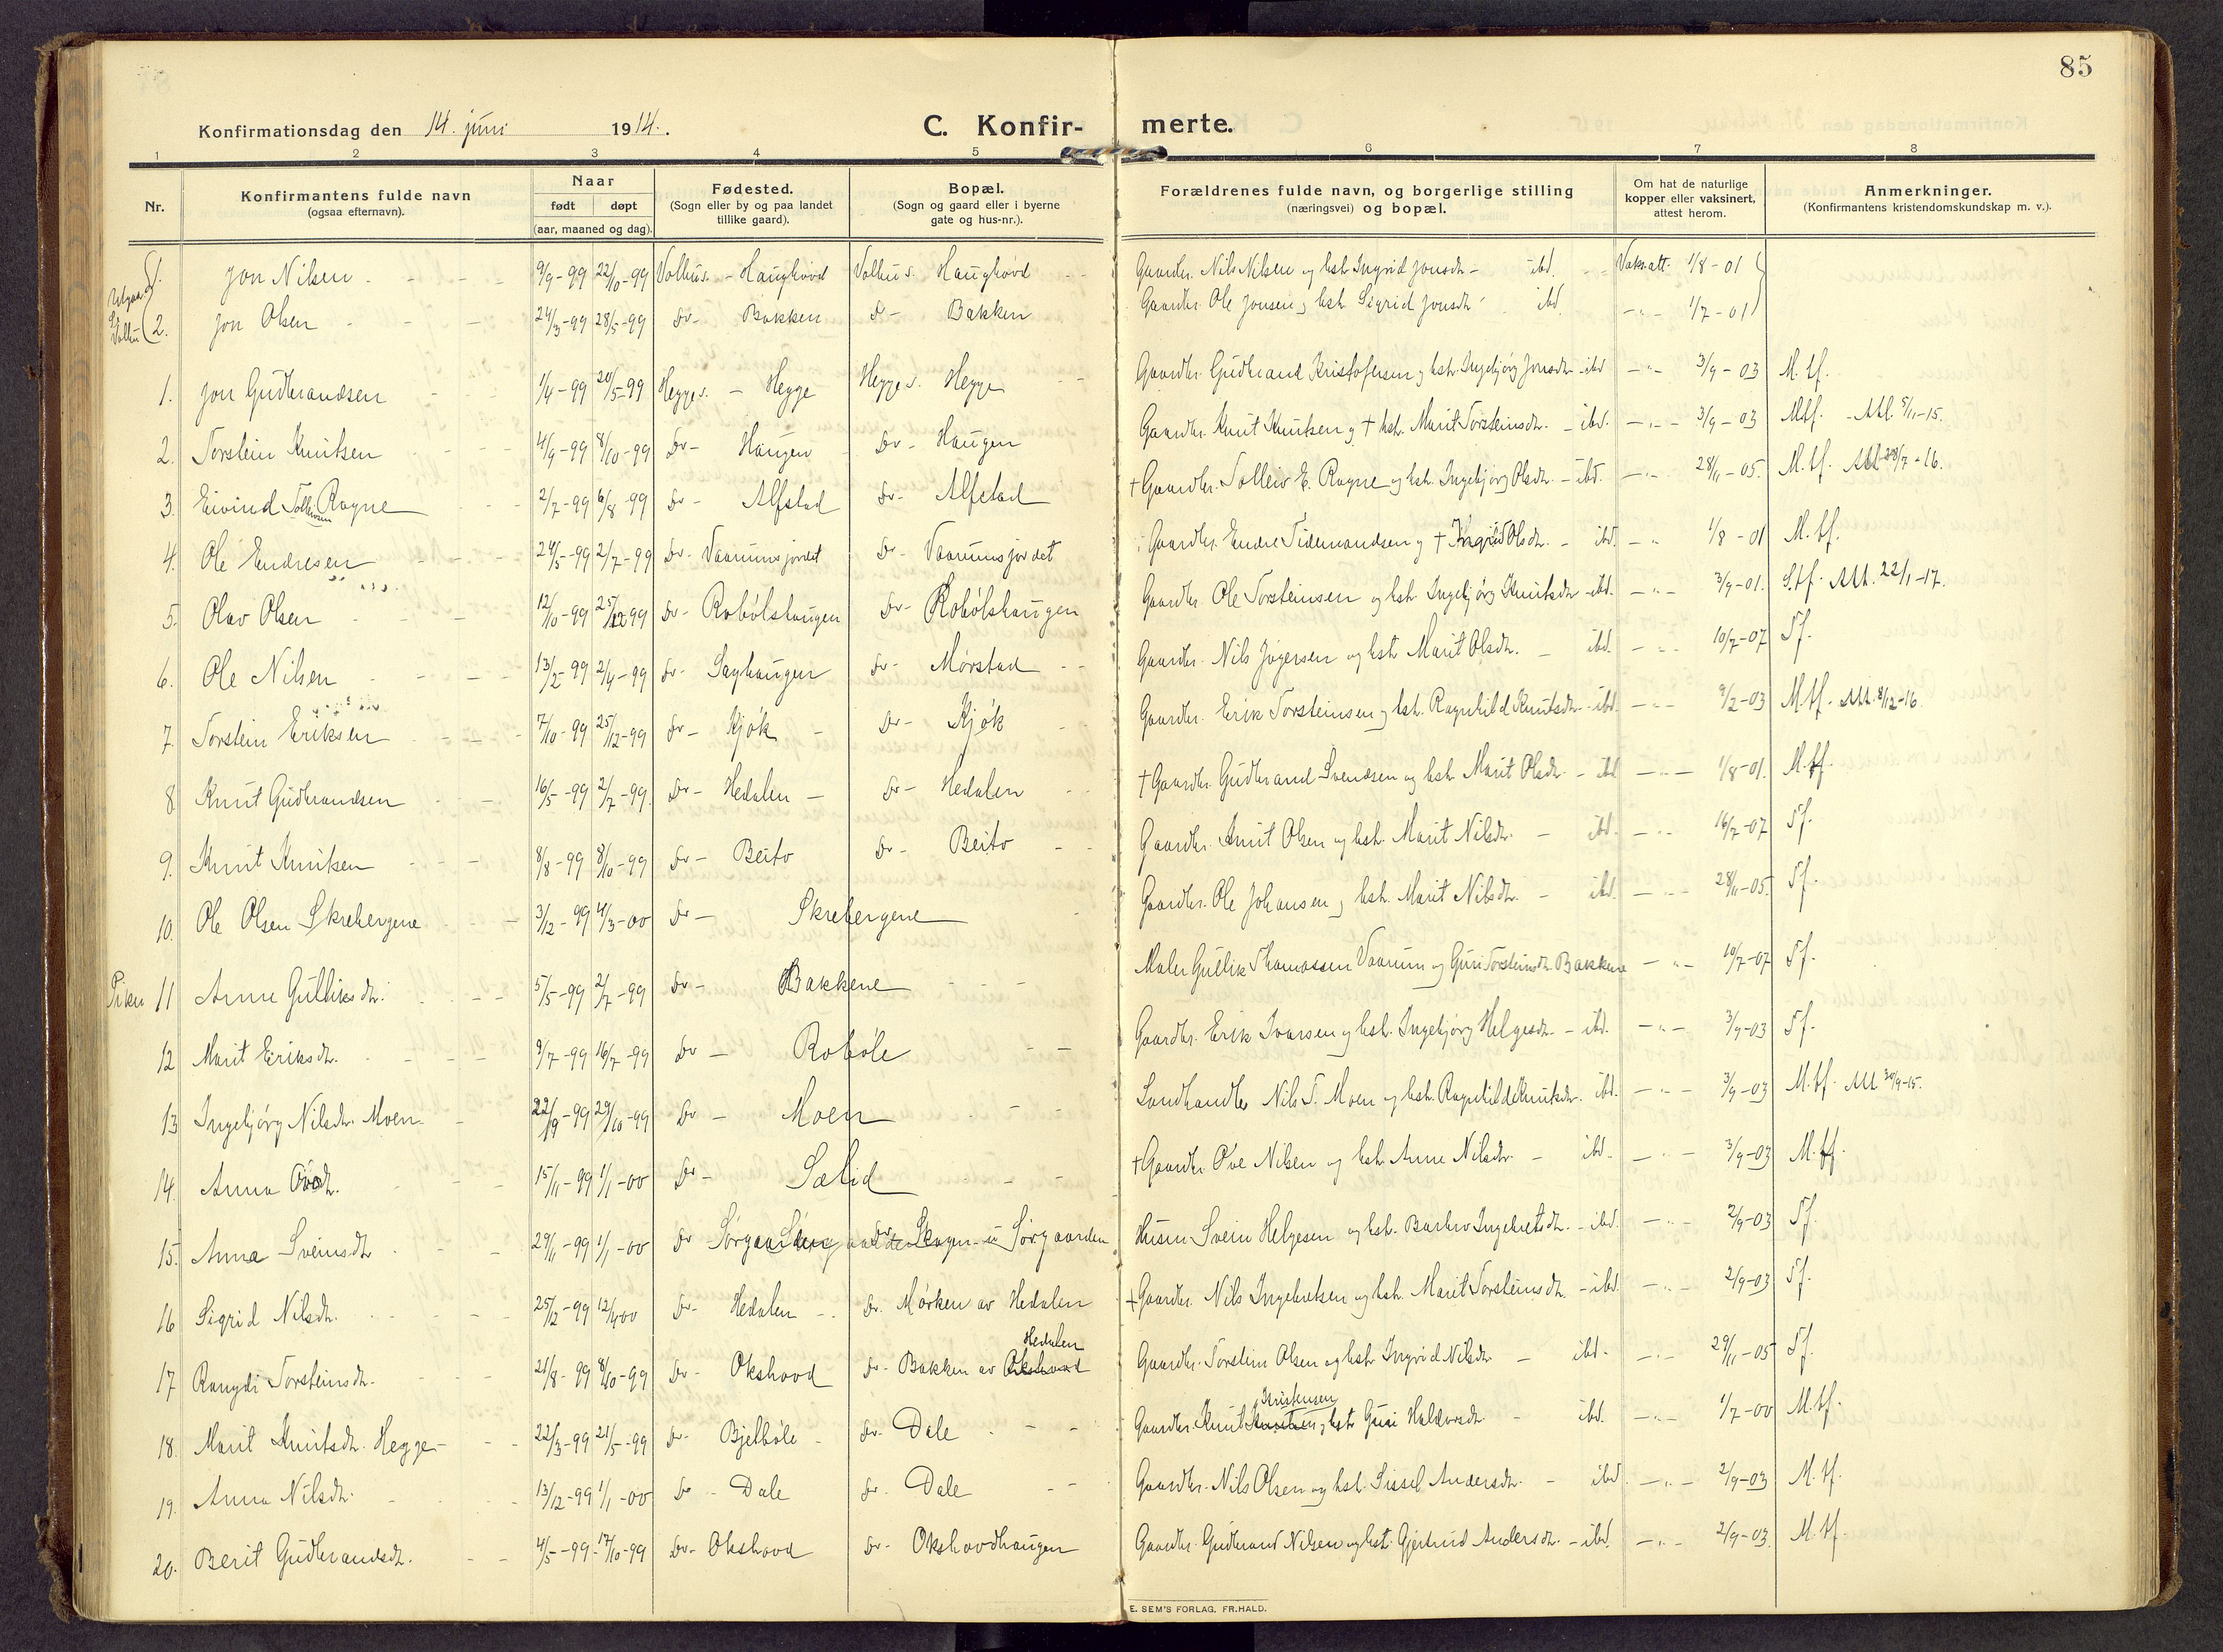 85
Konfirmationsdag den 14. juni 1914.
C. Konfirmerte.
1 2 3 4 5 6 7 8
Nr.
Konfirmantens fulde navn
(ogsaa efternavn).
Naar
født døpt
(aar, maaned og dag).
Fødested.
(Sogn eller by og paa landet
tillike gaard).
Bopæl.
(Sogn og gaard eller i byerne
gate og hus-nr.).
Forældrenes fulde navn, og borgerlige stilling
(næringsvei) og bopæl.
Om hat de naturlige
kopper eller vaksinert,
attest herom.
Anmerkninger.
(Konfirmantens kristendomskundskap m. v.).
1. Jon Nilsen 9/9-99 22/10-99 Volbu s. - Haughovd Volbu s. Haughovd Gaardbr. Nils Nilsen og hstr. Ingrid Jonsdtr. - ibd. Vaks.att. 1/8-01
2. Jon Olsen 24/3-99 28/5-99 Do - Bakken Do - Bakken Gaardbr. Ole Jonsen og hstr. Sigrid Jonsdtr. ibd. -"- 1/7-01
1. Jon Gudbrandsen 1/4-99 20/5-99 Hegge s. - Hegge Hegge s. Hegge Gaardbr. Gudbrand Kristofersen og hstr. Ingebjørg Jonsdtr. - ibd. -"- 3/9-03 M.tf.
2. Torstein Knutsen 4/9-99 8/10-99 Do - Haugen Do - Haugen Gaardbr. Knut Knutsen og † hstr. Marit Torsteinsdtr. - ibd. -"- 3/9-03 Mtf. - Att. 8/11-15.
3. Eivind Tolleivsen Rogne 2/7-99 6/8-99 Do - Alfstad Do - Alfstad † Gaardbr. Tolleiv E. Rogne og hstr. Ingebjørg Olsdtr. - ibd. -"- 28/11-05. M.tf. Att 28/7-16.
4. Ole Endresen 24/5-99 2/7-99 Do - Vaarumsjordet Do - Vaarumsjordet Gaardbr. Endre Tidemandsen og † Ingrid Olsdtr. - ibd. -"- 1/8-01 M.tf.
5. Olav Olsen 12/10-99 25/12 99 Do - Robølshaugen Do - Robølshaugen Gaardbr. Ole Torsteinsen og hstr. Ingebjørg Knutsdtr. - ibd. -"- 3/9-01. S.tf. Att. 22/1-17.
6. Ole Nilsen 13/2-99 2/4-99 Do - Saghaugen Do - Mørstad Gaardbr. Nils Jøgersen og hstr. Marit Olsdtr. - ibd. -"- 10/7-07 Tf.
7. Torstein Eriksen 7/10-99 25/12-99 Do - Kjøk Do - Kjøk Gaardbr. Erik Torsteinsen og hstr. Ragnhild Knutsdtr. - ibd. -"- 9/2-03 M.tf. - Att. 8/12-16.
8. Knut Gudbrandsen 16/5-99 2/7-99 Do - Hedalen - Do - Hedalen † Gaardbr. Gudbrand Svendsen og hstr. Marit Olsdtr. - ibd. -"- 1/8-01. M.tf.
9. Knut Knutsen 8/8-99 8/10-99 Do - Beito Do - Beito Gaardbr. Knut Olsen og hstr. Marit Nilsdtr. - ibd. -"- 16/7-07 Tf.
10. Ole Olsen Skrebergene 3/12-99 4/3-00 Do - Skrebergene Gaardbr. Ole Johansen og hstr. Marit Nilsdtr. - ibd. -"- 28/11-05. Tf.
Piker 11 Anne Gulliksdtr. 5/5-99 2/7-99 Do - Bakkene Maler Gullik Thomassen Vaarum og Guri Torsteinsdtr. Bakkene -"- 10/7-07 Tf.
12 Marit Eriksdtr. 9/7-99 16/7-99 Do - Robøle Gaardbr. Erik Ivarsen og hstr. Ingebjørg Helgesdtr. - ibd. -"- 3/9-03 Tf.
13 Ingebjørg Nilsdtr. Moen 22/9-99 29/10-99 Do - Moen Landhandler Nils T. Moen og hstr. Ragnhild Knutsdtr. ibd. -"- 3/9-03 M.tf. Att 30/9-15.
14. Anna Ovesdtr. 15/11-99 1/1-00 Do - Sælid † Gaardbr. Ove Nilsen og hstr. Anne Nilsdtr. - ibd. -"- 3/9-03 M.tf.
15. Anna Sveinsdtr. 29/11-99 1/1-00 Do Sørgaarden Skogen u. Sørgaarden Husm. Svein Helgesen og hstr. Barbro Ingebretsdtr. - ibd. -"- 2/9-03 Tf.
16 Sigrid Nilsdtr. 25/12-99 12/4 00 Do - Hedalen - Do. Mørken av Hedalen † Gaardbr. Nils Ingebretsen og hstr. Marit Torsteinsdtr. - ibd. -"- 2/9-03 Tf.
17 Rangdi Torsteinsdtr. 21/8-99 8/10-99 Do - Okshovd Do - Bakken av Okshovd Hedalen Gaardbr. Torstein Olsen og hstr. Ingrid Nilsdtr. - ibd. -"- 29/11-05 Tf.
18. Marit Knutsdtr. Hegge 22/3-99 21/5-99 Do - Bjelbøle - Do - Dale Gaardbr. Knut Knutsen Kristensen og hstr. Guri Haldorsdtr. - ibd. -"- 1/7-00 M.tf.
19. Anna Nilsdtr. 13/12-99 1/1-00 Do - Dale Do. Dale Gaardbr. Nils Olsen og hstr. Sissel Andersdtr. - ibd. -"- 2/9-03 M.tf.
20. Berit Gudbrandsdtr. 4/5-99 17/10-99 Do - Okshovd Do - Okshovdhaugen Gaardbr. Gudbrand Nilsen og hstr. Gjertrud Andersdtr. - ibd. -"- 2/9-03. M.tf.
E. SEM'S FORLAG, FR.HALD.